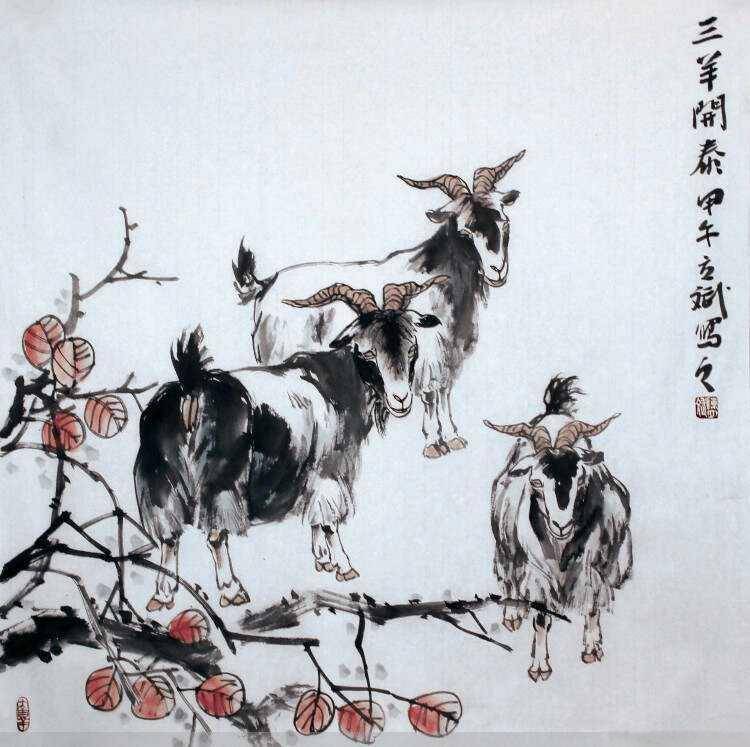 三羊開泰 甲午立斌寫之